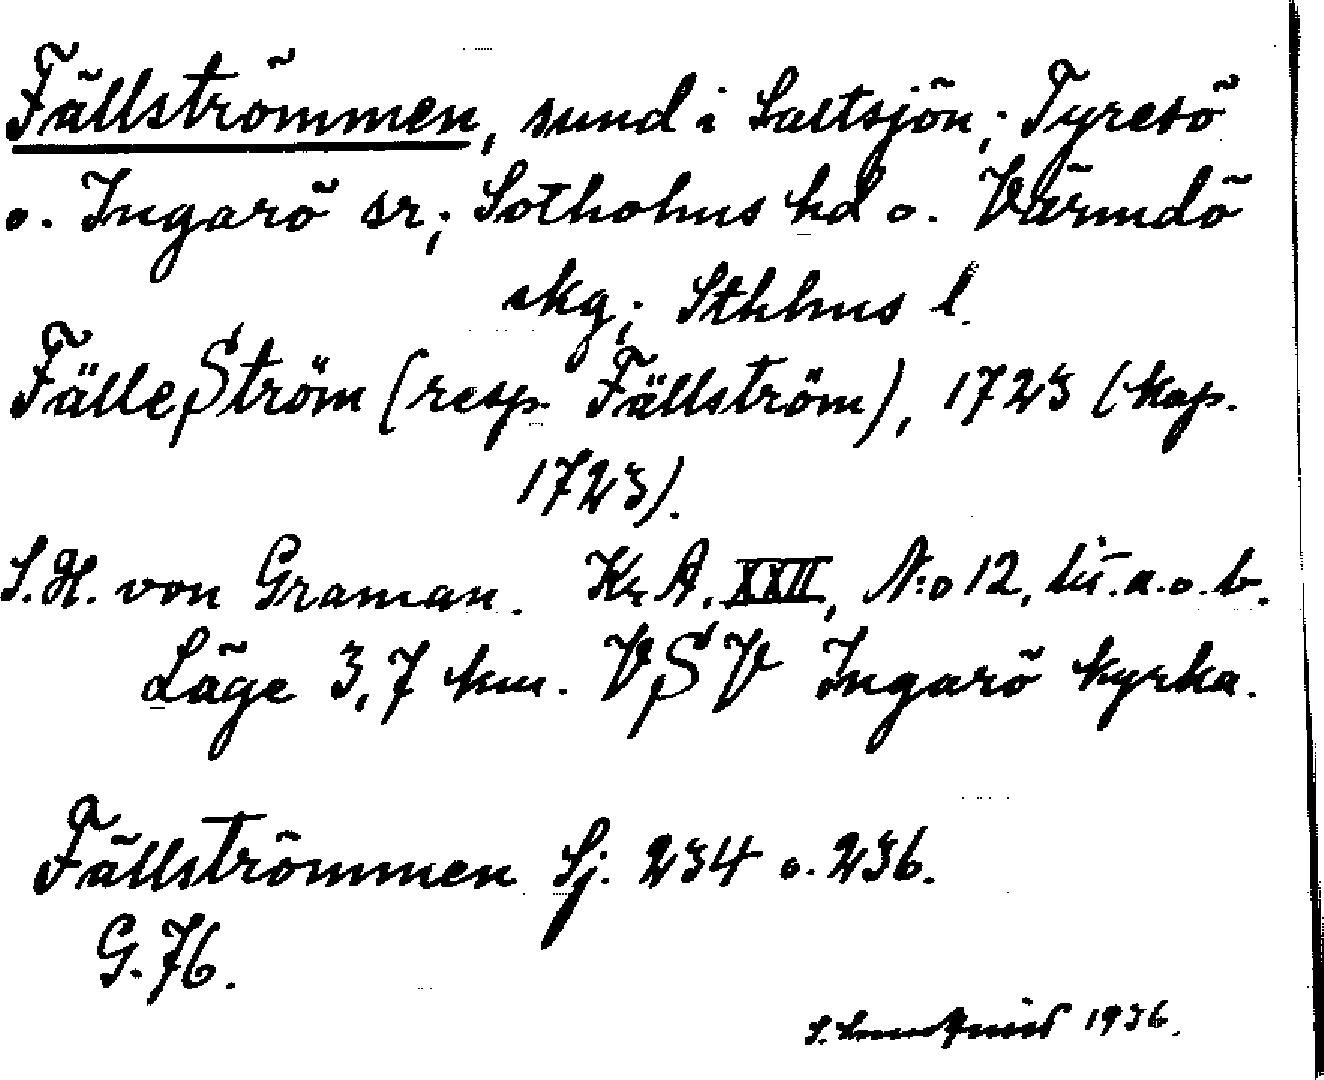 Fällströmmen, sund i Saltsjön; Tyresö
o. Ingarö sr; Sotholms hd o. Värmdö
skg; Sthlms l.
FälleStröm (resp. Fällström), 1723 (kop.
1723).
S.H. von Graman. Kr A. XXII, N:o 12, lit. a. o. b.
Läge 3,7 km. VSV Ingarö kyrka.
Fällströmmen Sj. 234 o. 236.
G. 76.
1936.